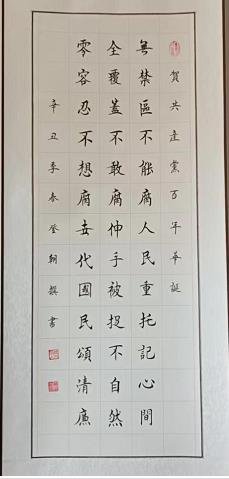 賀共產黨百年華誕
無禁區不能腐人民重托記心間
全覆蓋不敢腐伸手被捉不自然
零容忍不想腐世代國民頌清廉
辛丑季春登朝撰書